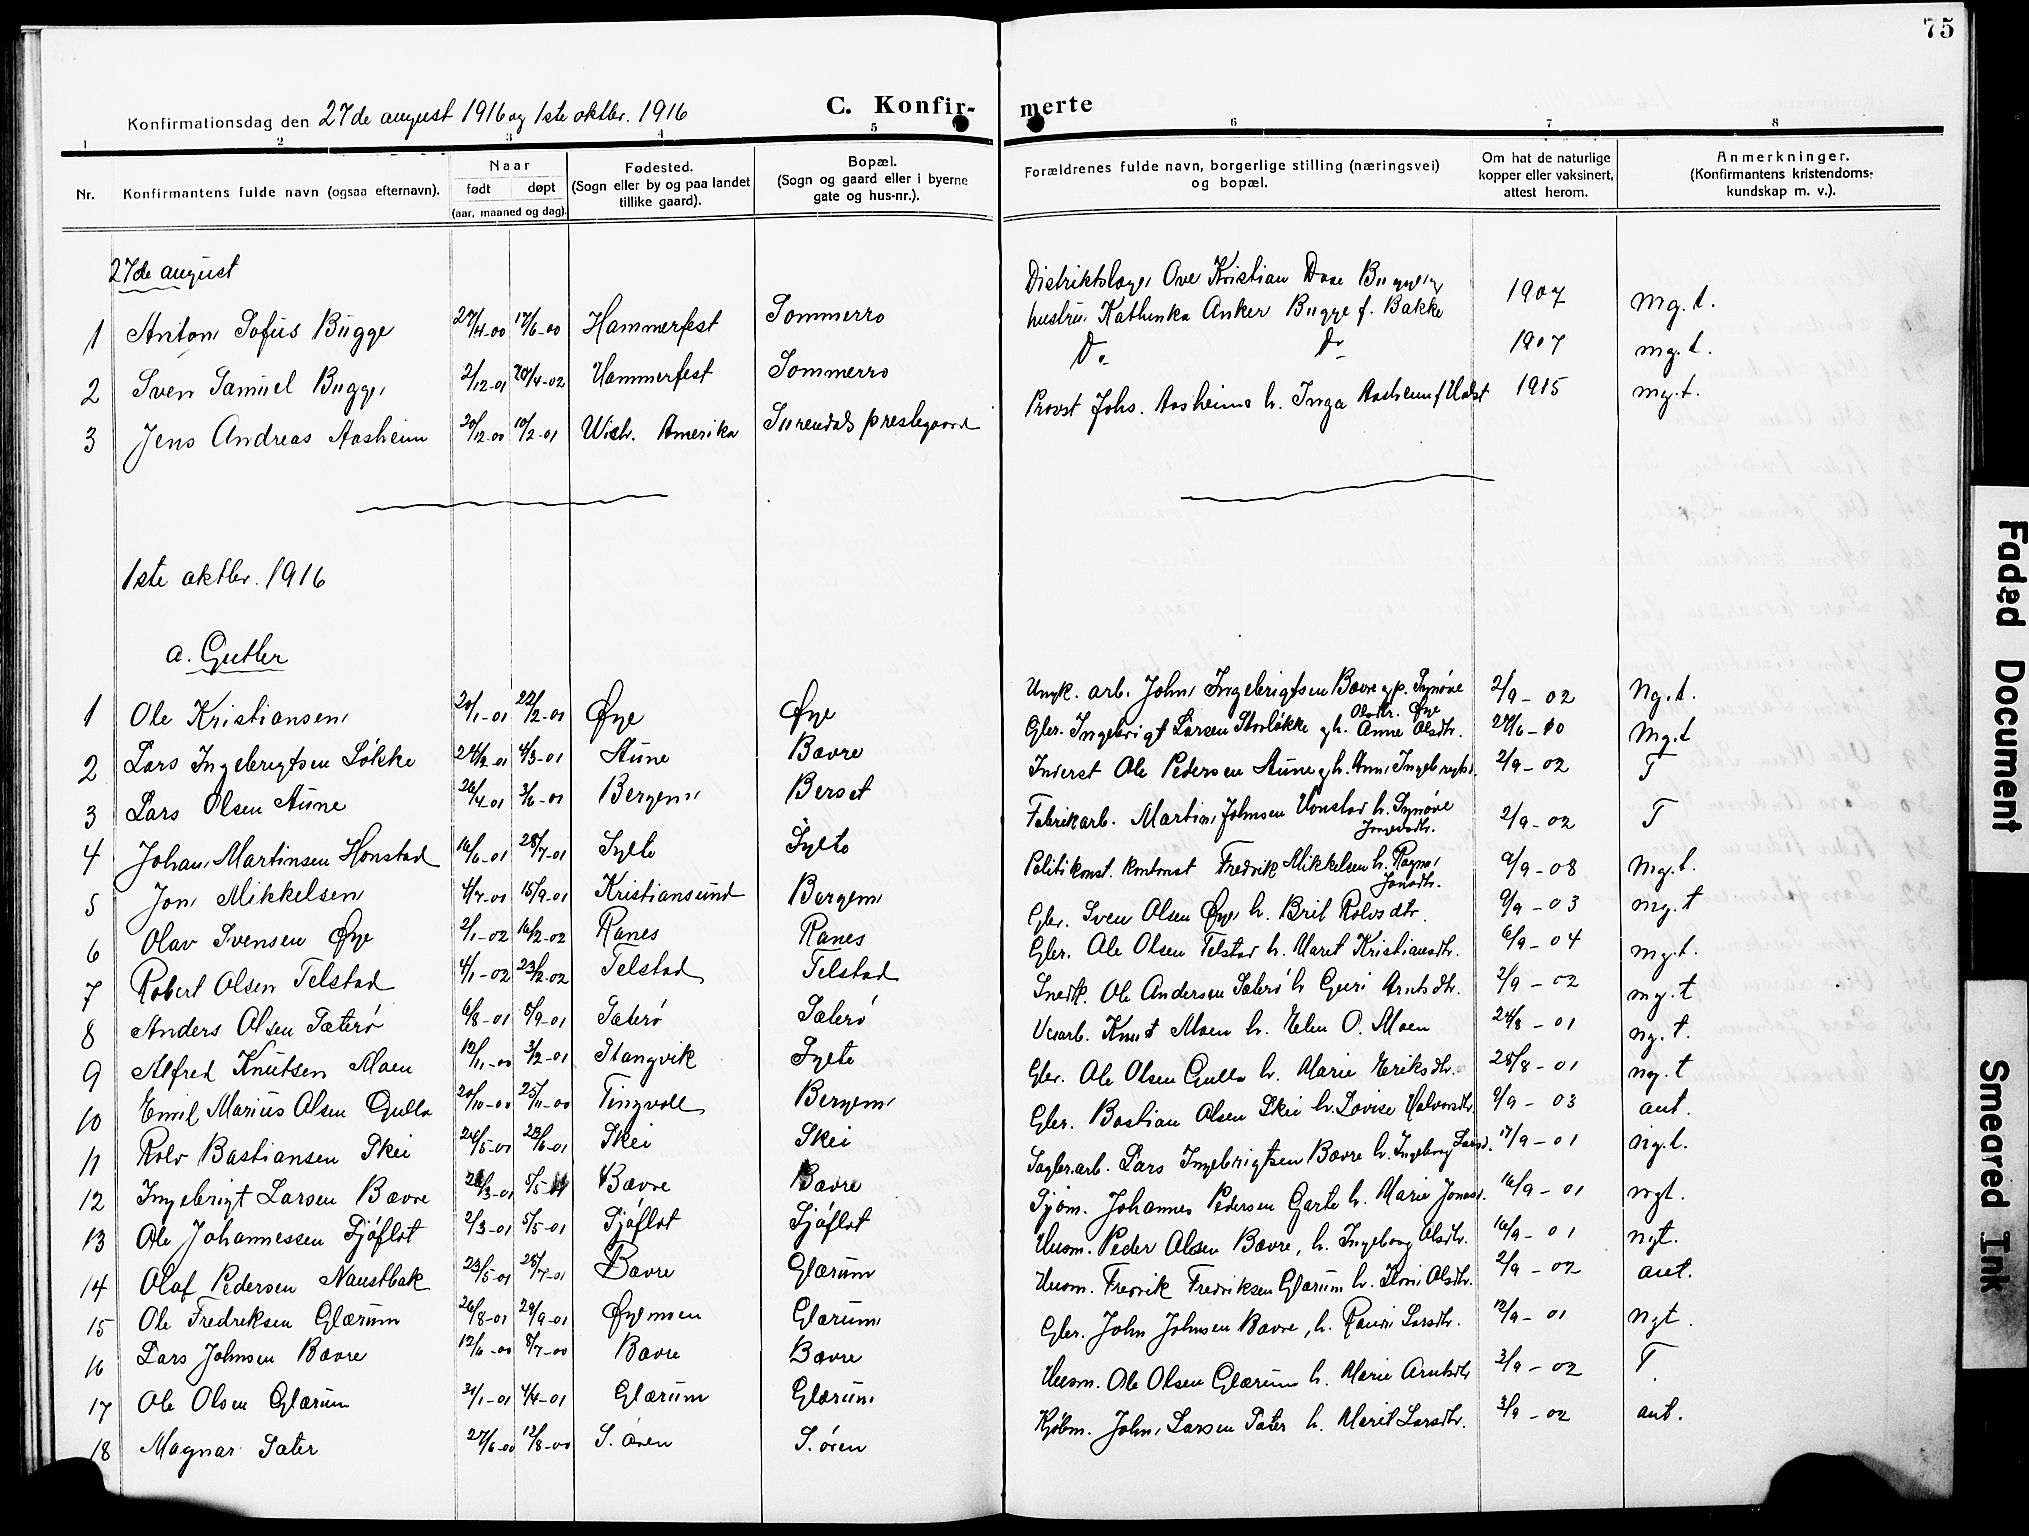 75
Konfirmationsdag den 27de august 1916 og 1ste oktbr. 1916
C. Konfirmerte
1 2 3 4 5 6 7 8
Nr. Konfirmantens fulde navn (ogsaa efternavn). Naar født døpt (aar, maaned og dag). Fødested. (Sogn eller by og paa landet tillike gaard). Bopæl. (Sogn og gaard eller i byerne gate og hus-nr.). Forældrenes fulde navn, borgerlige stilling (næringsvei) og bopæl. Om hat de naturlige kopper eller vaksinert, attest herom. Anmerkninger. (Konfirmantens kristendoms-kundskap m. v.).
27de august
1 Anton Sofus Bugge 27/4-00 17/6-00 Hammerfest Sommerro Distriktslæge Ove Kristian Bugge og hustru Kathinka Anker Bugge f. Bakke 1907 Mg.t.
2 Sven Samuel Bugge 2/12-01 20/4-02 Hammerfest Sommerro Do Do 1907 mg.t.
3 Jens Andreas Aasheim 20/12-00 10/2-01 Amerika Surendals prestegaard Provst Johs. Aasheim h. Inga Aasheim 1915 mg.t.
1ste oktbr. 1916
a. Gutter
1 Ole Kristiansen 20/1-01 22/2-01 Øye Øye arb. John Ingebrigtsen Bævre Synøve Olsdtr. Øye 2/9-02 Ng.t.
2 Lars Ingebrigtsen Løkke 24/2-01 4/3-01 Aune Bævre Gbr. Ingebrigt Larsen Storløkke h. Anne Olsdtr. 27/6-10 Mg.t
3 Lars Olsen Aune 26/4-01 3/6-01 Bergem Berset Inderst Ole Pedersen Aune h. Ane Ingebrigtsd. 2/9-02 T
4 Johan Martinsen Honstad 16/6-01 28/7-01 Sylte Sylte Fabrikarb. Martin Johnsen Honstad h. Synøve 2/9-02 T
5 Jon Mikkelsen 4/7-01 15/9-01 Kristiansund Bergem Politikonst. Fredrik Mikkelsen h. Ragna Jonsdtr. 9/9-08 Mg.t.
6 Olav Svensen Øye 2/1-02 16/2-02 Ranes Ranes Gbr. Sven Olsen Øye h. Brit Rolvsdtr. 9/9-03 mg.t
7 Robert Olsen Telstad 4/1-02 23/2-02 Telstad Telstad Gbr. Ole Olsen Telstad h. Maret Kristiansdtr. 6/9-04 mg.t.
8 Anders Olsen Sæterø 6/8-01 8/9-01 Sæterø Sæterø Snedk. Ole Andersen Sæterø h Guri Arntsdtr. 2/9-02 mg.t
9 Alfred Knutsen Moen 12/11-00 3/2-01 Stangvik Sylte Knut Moen h. Elen O. Moen 24/8-01 ng.t.
10 Emil Marius Olsen Gulla 20/10-00 25/11-00 Tingvoll Bergem Gbr. Ole Olsen Gulla h. Marie Eriksdtr. 28/8-01 ng.t
11 Rolv Bastiansen Skei 24/5-01 23/6-01 Skei Skei Gbr. Bastian Olsen Skei h. Lovise Halvorsdtr. 9/9-03 aut.
12 Ingebrigt Larsen Bævre 3-01 5/5-01 Bævre Bævre Sagbr.arb. Lars Ingebrigtsen Bævre h. Ingeborg Larsd. 17/9-01 ng.t.
13 Ole Johannessen Sjøflot 2/3-01 5/5-01 Sjøflot Sjøflot Sjøm. Johannes Pedersen Garte h. Marie Jonasd. 16/9-01 mgt.
14 Olaf Pedersen Naustbak 23/5-01 28/7-01 Bævre Glærum Husm. Peder Olsen Bævre, h. Ingeborg Olsdtr. 16/9-01 ngt.
15 Ole Fredriksen Glærum 26/8-01 29/9-01 Øyemoen Glærum Husm. Fredrik Fredriksen Glærum h. Olsdtr. 2/9-02 aut.
16 Lars Johnsen Bævre 12/6-00 8/7-00 Bævre Bævre Gbr. John Johnsen Bævre, h. Larsdtr. 12/9-01 ngt.
17 Ole Olsen Glærum 31/1-01 4/4-01 Glærum Glærum Husm. Ole Olsen Glærum h. Marie Arntsdtr 3/9-02 T.
18 Magnar Sæter 27/6-00 12/8-00 S.øren S.øren Kjøbm. John Larsen Sæter h. Marit Larsdtr. 3/9-02 aut.
Faded Document
Smeared Ink